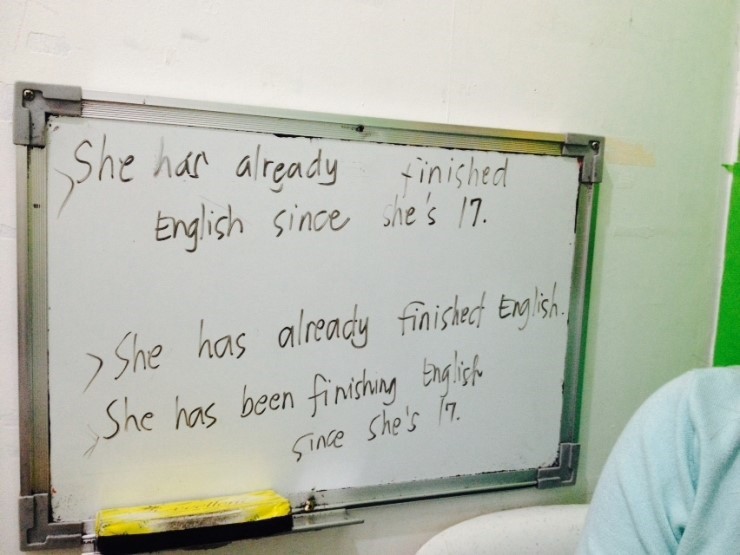 > She has already finished
English since she's 17.
> She has already finished English.
> She has been finishing English
since she's 17.